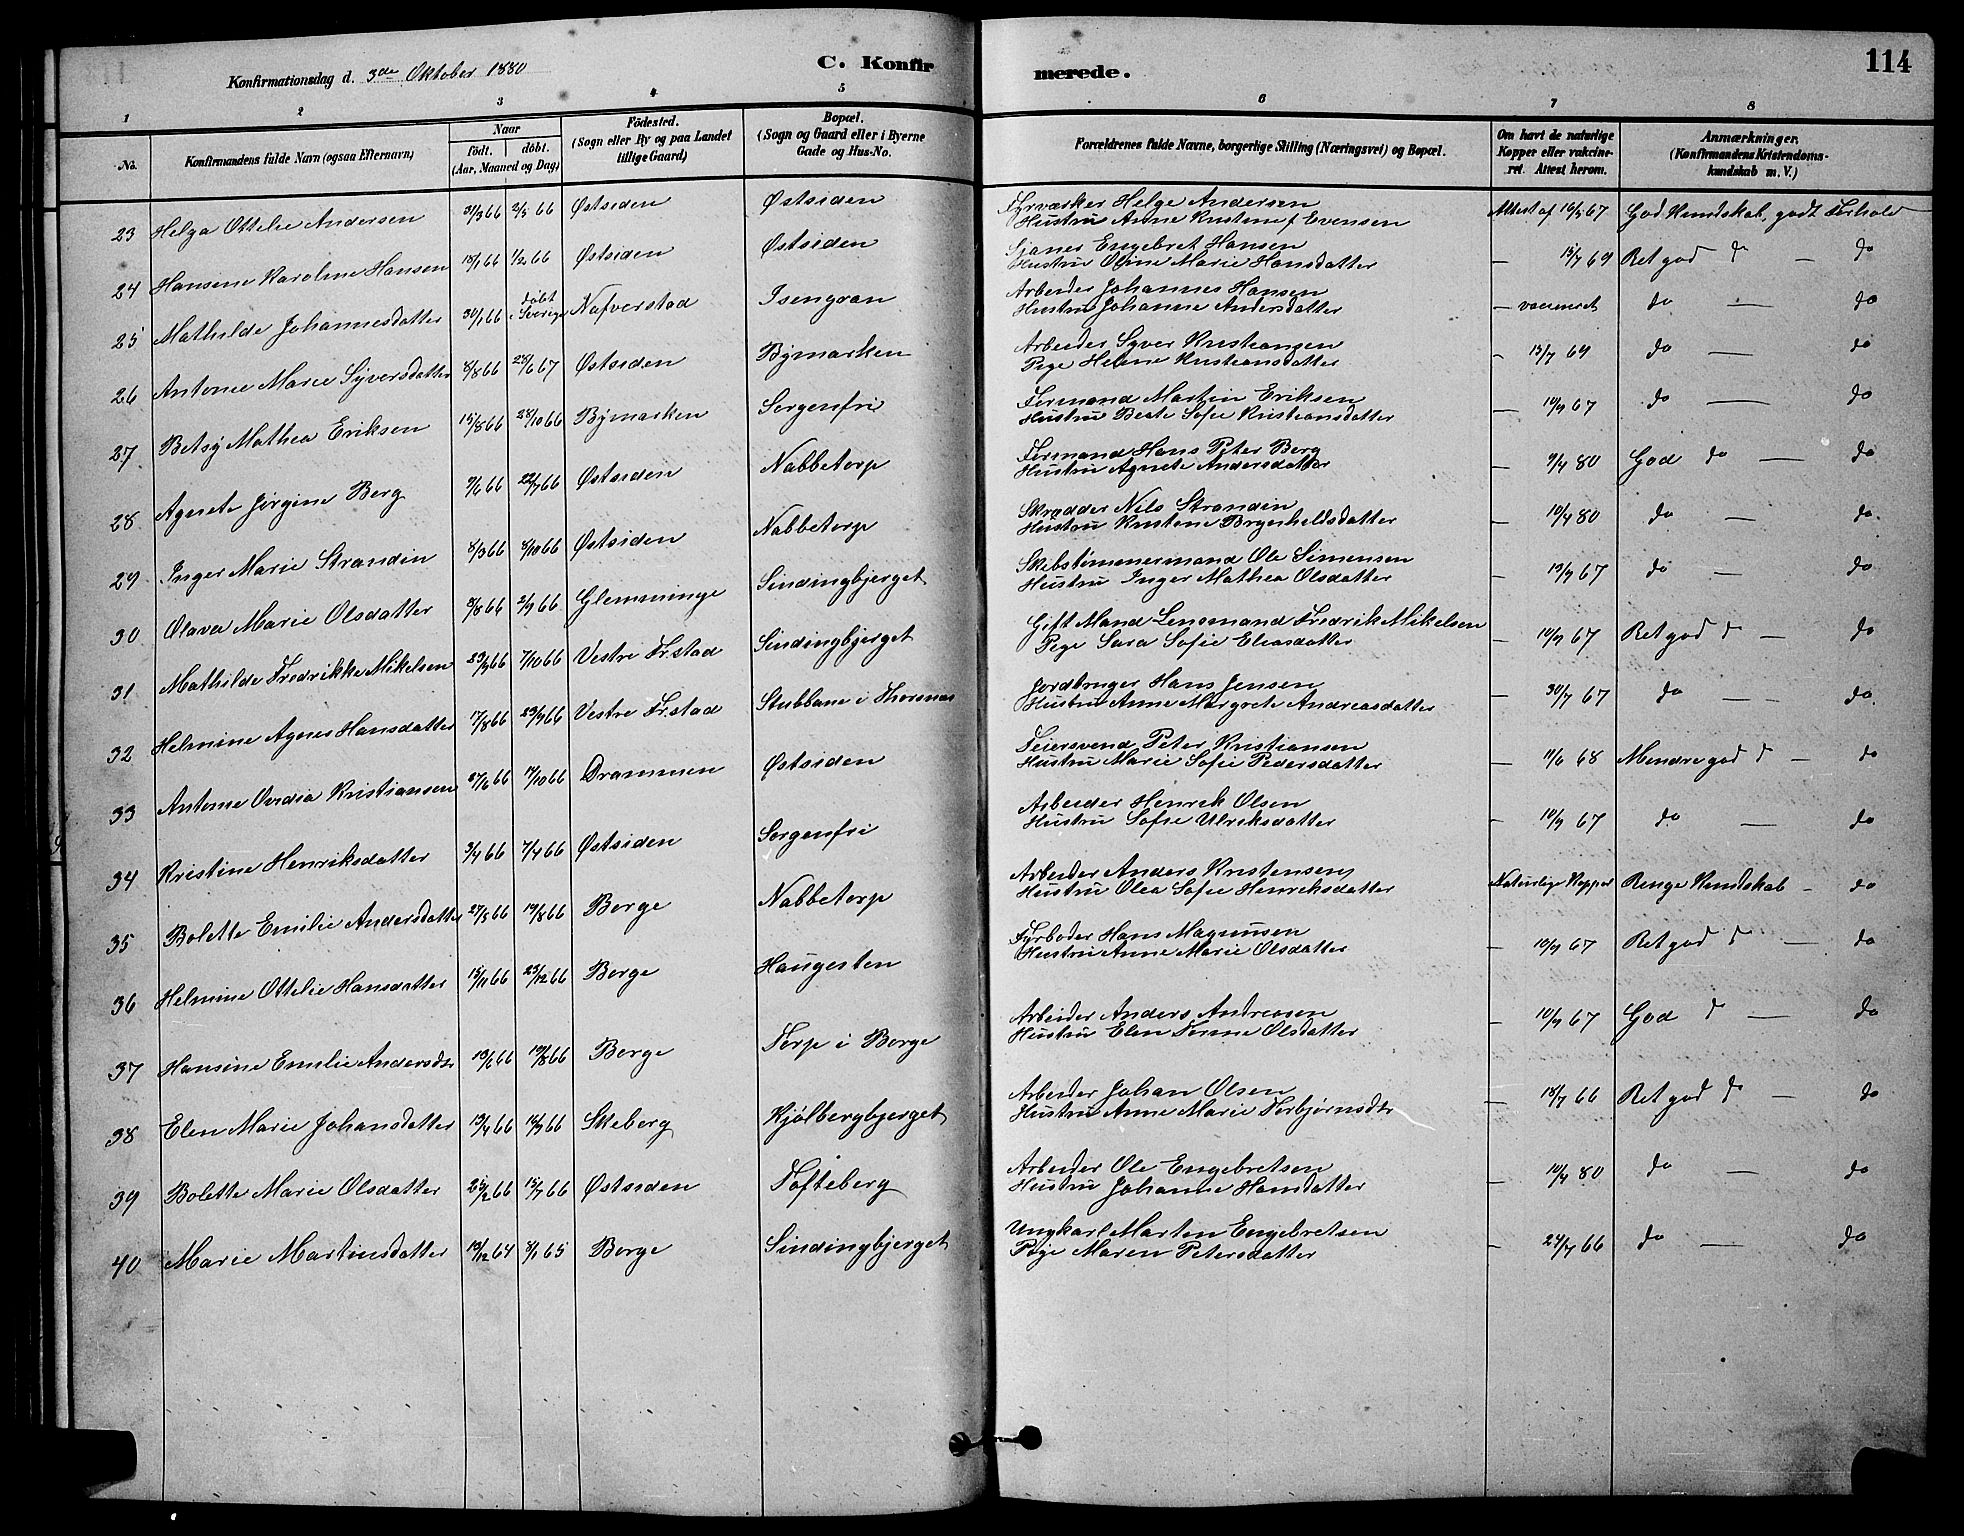 Konfirmationsdag d. 3de Oktober 1880
C. Konfirmerede.
114
1 2 3 4 5 6 7 8
No.
Konfirmandens fulde Navn (ogsaa Efternavn)
Naar
födt. döbt.
(Aar, Maaned og Dag)
Födested.
(Sogn eller By og paa Landet
tillige Gaard)
Bopæl.
(Sogn og Gaard eller i Byerne
Gade og Hus-No.
Forældrenes fulde Navne, borgerlige Stilling (Næringsvei) og Bopæl.
Om havt de naturlige
Kopper eller vakcine-
ret. Attest herom.
Anmærkninger.
(Konfirmandens Kristendoms-
kundskab m. V.)
23 Helga Ottelie Andersen 31/3 66 2/5 66 Østsiden Østsiden
Fyrværker Helge Andersen
Hustru Anne Kristine f Evensen
Attest af 16/5 67 God Kundskab, godt Forhold
24 Hansine Karoline Hansen 18/1 66 1/2 66 Østsiden Østsiden
Sjauer Engebret Hansen
Hustru Oline Marie Hansdatter
— 15/7 69 Ret god d — do
25 Mathilde Johannesdatter 30/1 66 døbt i Sverige Nafverstad Isengran
Arbeider Johannes Hansen
Hustru Johanne Andersdatter
— vaccineret do — do
26 Antonie Marie Syversdatter 8/8 66 28/6 67 Østsiden Bymarken
Arbeider Syver Kristiansen
Pige Helene Kristiansdatter
— 15/7 69 do — do
27 Betsy Mathea Eriksen 15/8 66 28/10 66 Bymarken Sorgenfri
Formand Martin Eriksen
Hustru Beate Sofie Kristiansdatter
— 10/9 67 do — do
28 Agnete Jørgine Berg 9/6 66 22/7 66 Østsiden Nabbetorp
Formand Hans Peter Berg
Hustru Agnete Andersdatter
— 9/4 80 God do — do
29 Inger Marie Strandin 8/3 66 8/10 66 Østsiden Nabbetorp
Skrædder Nils Strandin
Hustru Kristine Brynhildsdatter
— 10/4 80 do — do
30 Olava Marie Olsdatter 9/8 66 2/9 66 Glemminge Sindingbjerget
Skibstømmermand Ole Simensen
Hustru Inger Mathea Olsdatter
— 19/9 67 do — do
31 Mathilde Fredrikke Mikelsen 23/9 66 7/10 66 Vestre Fr.stad Sindingbjerget
Gift Mand Lensmand Fredrik Mikelsen
Pige Sara Sofie Eliasdatter
— 10/9 67 Ret god d — do
32 Helmine Agnes Hansdatter 17/8 66 23/9 66 Vestre Fr.stad Stubbane i Thorsnæs
Jordbruger Hans Jensen
Hustru Anne Margrete Andreasdatter
— 30/7 67 do — do
33 Antonie Ovidia Kristiansen 27/6 66 14/10 66 Drammen Østsiden
Feiersvend Peter Kristiansen
Hustru Marie Sofie Pedersdatter
— 11/6 68 Mindre god d — do
34 Kristine Henriksdatter 3/4 66 7/4 66 Østsiden Sorgenfri
Arbeider Henrik Olsen
Hustru Sofie Ulriksdatter
— 10/9 67 do — do
35 Bolette Emilie Andersdatter 27/5 66 19/8 66 Borge Nabbetorp
Arbeider Anders Kristensen
Hustru Olea Sofie Henriksdatter
Naturlige Kopper Ringe Kundskab — do
36 Helmine Ottelie Hansdatter 15/11 66 23/12 66 Borge Haugesten
Fyrbøder Hans Magnusen
Hustru Anne Marie Olsdatter
— 10/9 67 Ret god d — do
37 Hansine Emilie Andersdtr 13/6 66 19/8 66 Borge Torp i Borge
Arbeider Anders Andresen
Hustru Elen Tonne Olsdatter
— 10/9 67 God d — do
38 Elen Marie Johansdatter 13/4 66 16/9 66 Skeberg Kjølbergbjerget
Arbeider Johan Olsen
Hustru Anne Marie Torbjørnsdtr
— 18/7 66 Ret god d — do
39 Bolette Marie Olsdatter 25/2 66 15/7 66 Østsiden Tofteberg
Arbeider Ole Engebretsen
Hustru Johanne Hansdatter
— 10/4 80 do — do
40 Marie Martinsdatter 13/12 64 8/1 65 Borge Sindingbjerget
Ungkarl Marten Engebretsen
Pige Maren Petersdatter
— 24/7 66 do — do